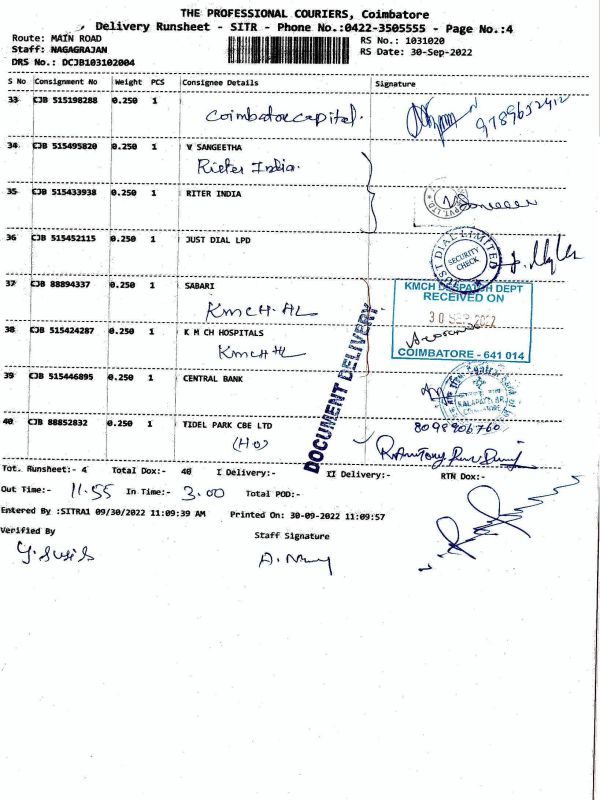 THE PROFESSIONAL COURIERS, Coimbatore
Delivery Runsheet - SITR - Phone No.:0422-3505555 - Page No.:4
Route: MAIN ROAD
RS No.: 1031020
Staff: NAGAGRAJAN
RS Date: 30-Sep-2022
DRS No.: DCJB103102004
S No Consignment No Weight PCS Consignee Details Signature
33 CJB 515198288 0.250 1
Coimbatore capital.
9789652412
34 CJB 515495820 0.250 1 V SANGEETHA
Rieter India.
35 CJB 515433938 0.250 1 RITER INDIA
PVT. LTD
36 CJB 515452115 0.250 1 JUST DIAL LPD
JUST DIAL LIMITED
SECURITY CHECK
37 CJB 88894337 0.250 1 SABARI
KMCH-HL
KMCH DESPATCH DEPT
RECEIVED ON
30 SEP 2022
38 CJB 515424287 0.250 1 K M CH HOSPITALS
KMCH HL
COIMBATORE - 641 014
DOCUMENT DELIVERY
39 CJB 515446895 0.250 1 CENTRAL BANK
KALAPATTI BR.
40 CJB 88852832 0.250 1 TIDEL PARK CBE LTD
(HO)
8098906760
Tot. Runsheet:- 4 Total Dox:- 40 I Delivery:- II Delivery:- RTN Dox:-
Out Time:- 11.55 In Time:- 3.00 Total POD:-
Entered By :SITRA1 09/30/2022 11:09:39 AM Printed On: 30-09-2022 11:09:57
Verified By
Staff Signature